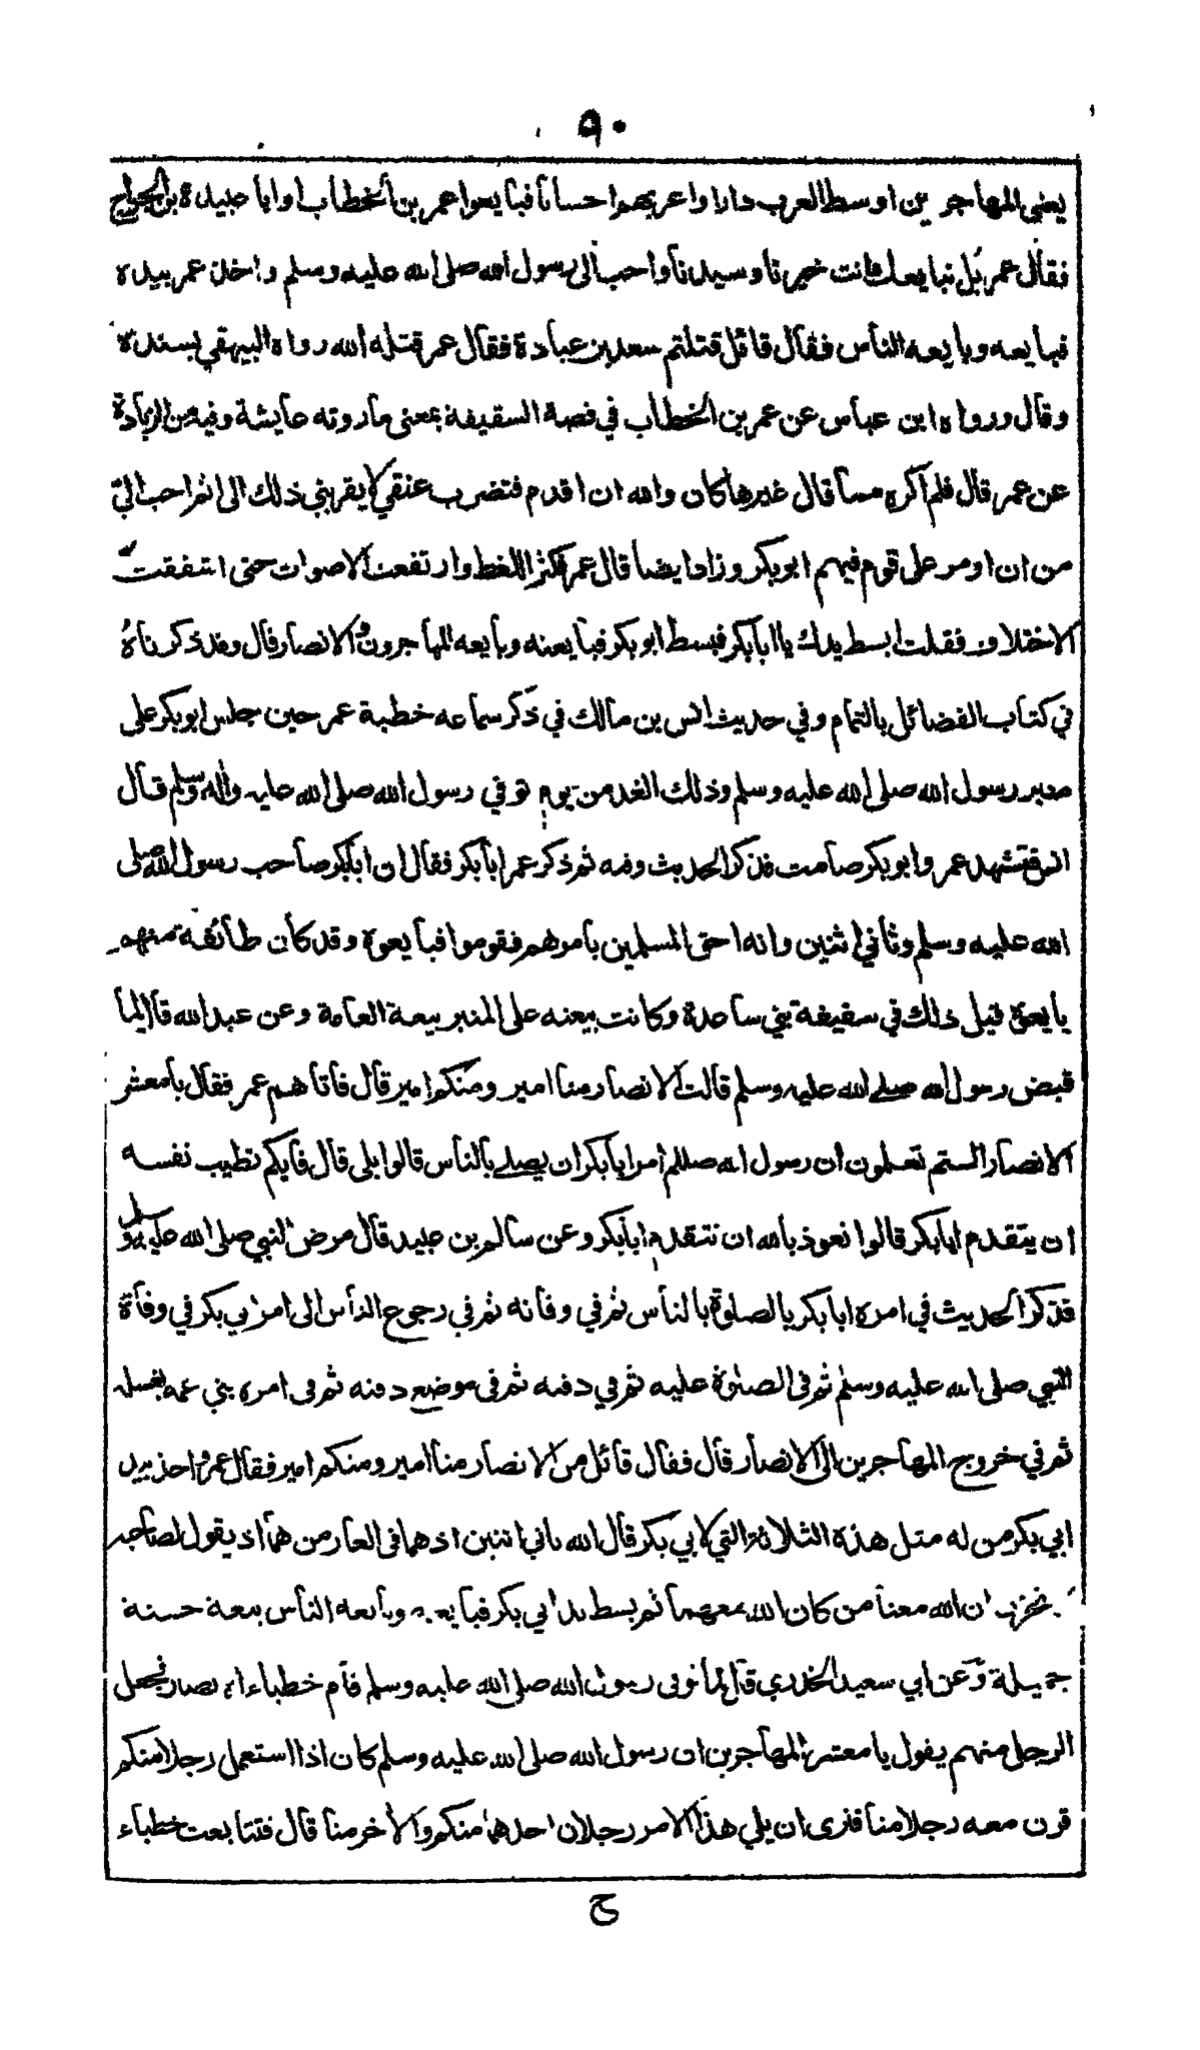 ٩٠
يعني المهاجرين اوسط العرب دارا واعربهم احسابا فبايعوا عمر بن الخطاب اوابا عبيدة بن الجراح
فقال عمر بل نبايعك فانت خيرنا وسيدنا واحب الى رسول الله صلى الله عليه وسلم واخذ عمر بيده
فبايعه وبايعه الناس فقال قائل قتلتم سعد بن عبادة فقال عمر قتله الله رواه البيهقي بسنده
وقال ورواه ابن عباس عن عمر بن الخطاب في قصة السقيفة بمعنى ماروته عايشة وفيه من الزيادة
عن عمر قال فلم اكره مما قال غيرها كان والله ان اقدم فتضرب عنقي لا يقربني ذلك الى اثم احب الي
من ان اومر على قوم فيهم ابوبكر وزاد ايضا قال عمر فكثر اللغط وارتفعت الاصوات حتى اشفقت
الاختلاف فقلت ابسط يدك يا ابابكر فبسط ابوبكر فبايعته وبايعه المهاجرون والانصار قال وقد ذكرناه
في كتاب الفضائل بالتمام وفي حديث انس بن مالك في ذكر سماعه خطبة عمر حين جلس ابوبكر على
منبر رسول الله صلى الله عليه وسلم وذلك الغد من يوم توفي رسول الله صلى الله عليه واله وسلم قال
انس فتشهد عمر وابوبكر صامت فذكر الحديث وفيه ثم ذكر عمر ابابكر فقال ان ابابكر صاحب رسول الله صلى
الله عليه وسلم وثاني اثنين وانه احق المسلمين بامرهم فقوموا فبايعوه وقد كان طائفة منهم
بايعوه قبل ذلك في سقيفة بني ساعدة وكانت بيعته على المنبر بيعة العامة وعن عبد الله قال لما
قبض رسول الله صلى الله عليه وسلم قالت الانصار منا امير ومنكم امير قال فاتاهم عمر فقال يا معشر
الانصار الستم تعلمون ان رسول الله صللم امر ابابكر ان يصلي بالناس قالوا بلى قال فايكم تطيب نفسه
ان يتقدم ابابكر قالوا نعوذ بالله ان نتقدم ابابكر وعن سالم بن عبيد قال مرض النبي صلى الله عليه وسلم
فذكر الحديث في امره ابابكر بالصلوة بالناس ثم في وفاته ثم في رجوع الناس الى امر ابي بكر في وفاة
النبي صلى الله عليه وسلم ثم في الصلوة عليه ثم في دفنه ثم في موضع دفنه ثم في امره بني عمه بغسله
ثم في خروج المهاجرين الى الانصار قال فقال قائل من الانصار منا امير ومنكم امير فقال عمر واخذ بيد
ابي بكر من له مثل هذه الثلاثة التي لابي بكر قال الله ثاني اثنين اذ هما في الغار من هما اذ يقول لصاحبه
لا تحزن ان الله معنا من كان الله معهما ثم بسط يد ابي بكر فبايعه وبايعه الناس بيعة حسنة
جميلة وعن ابي سعيد الخدري قال لما توفى رسول الله صلى الله عليه وسلم قام خطباء الانصار فجعل
الرجل منهم يقول يا معشر المهاجرين ان رسول الله صلى الله عليه وسلم كان اذا استعمل رجلا منكم
قرن معه رجلا منا فنرى ان يلي هذا الامر رجلان احدهما منكم والاخر منا قال فتتابعت خطباء
ح